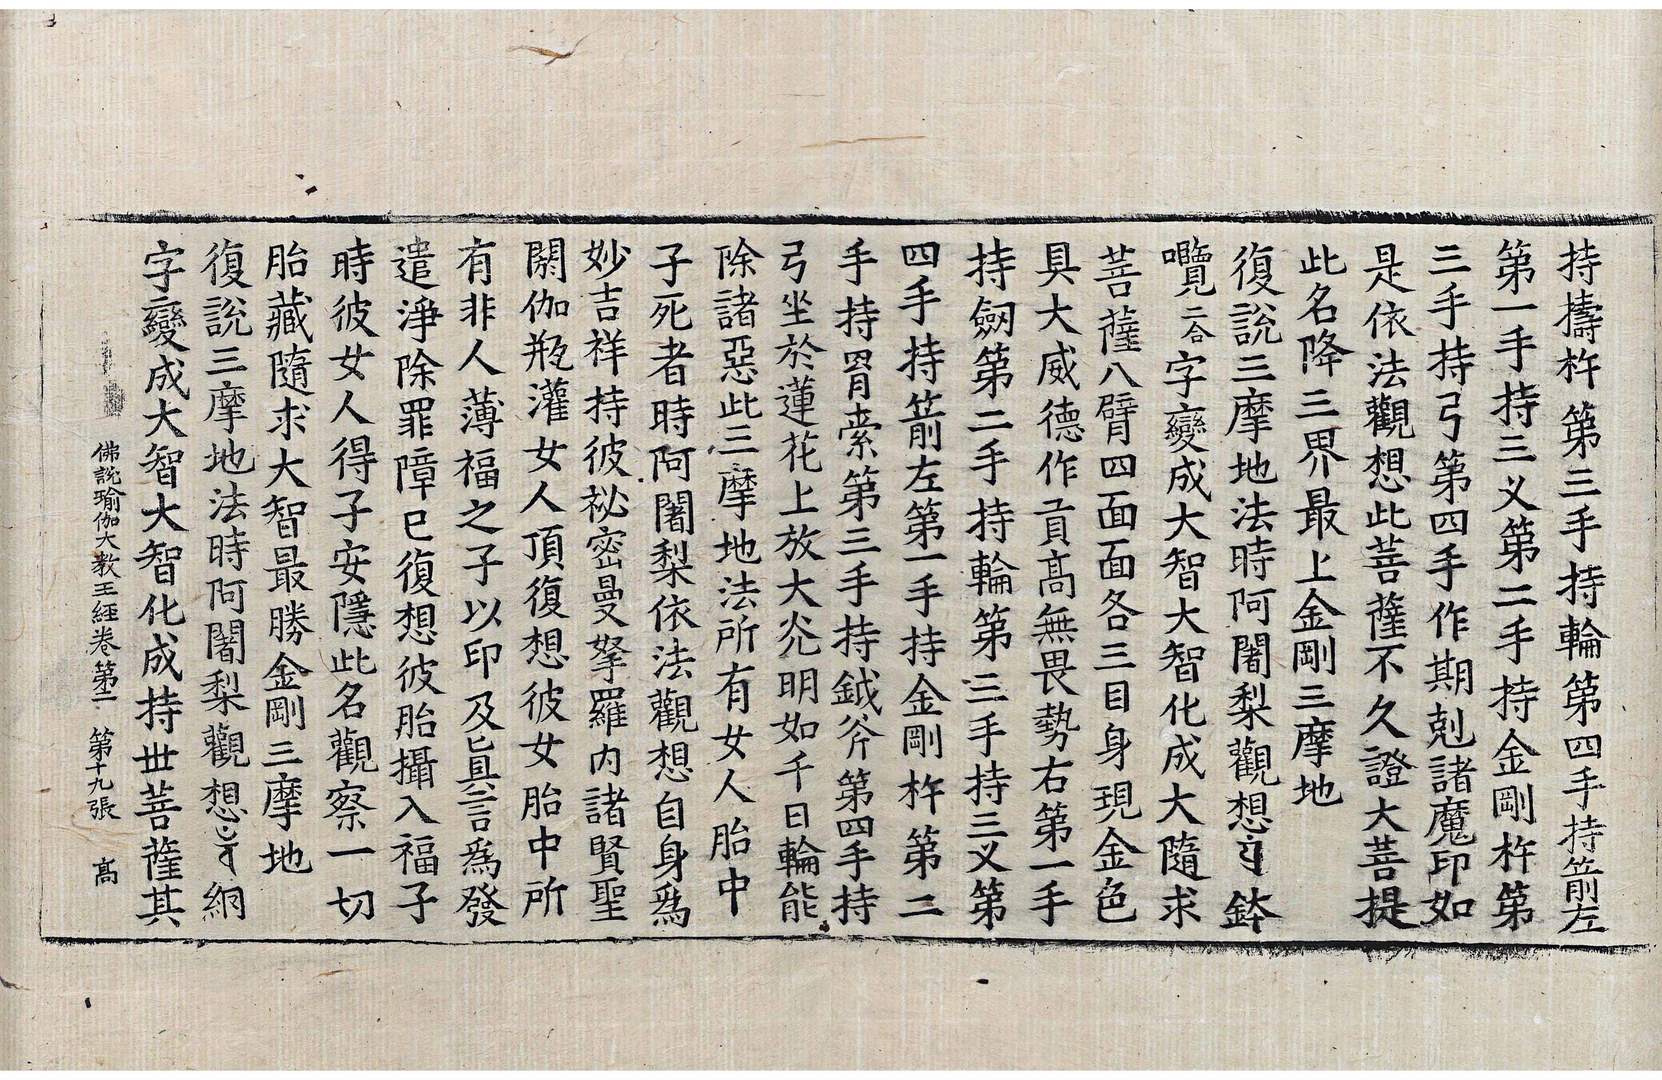 持擣杵第三手持輪第四手持箭左
第一手持三义第二手持金剛杵第
三手持弓第四手作期剋諸魔印如
是依法觀想此菩薩不久證大菩提
此名降三界最上金剛三摩地
復說三摩地法時阿闍梨觀想鉢
囕二合字變成大智大智化成大隨求
菩薩八臂四面面各三目身現金色
具大威德作貢高無畏勢右第一手
持劒第二手持輪第三手持三义第
四手持箭左第一手持金剛杵第二
手持罥索第三手持鉞斧第四手持
弓坐於蓮花上放大光明如千日輪能
除諸惡此三摩地法所有女人胎中
子死者時阿闍梨依法觀想自身爲
妙吉祥持彼祕密曼拏羅内諸賢聖
閼伽瓶灌女人頂復想彼女胎中所
有非人薄福之子以印及眞言爲發
遣淨除罪障已復想彼胎攝入福子
時彼女人得子安隱此名觀察一切
胎藏隨求大智最勝金剛三摩地
復說三摩地法時阿闍梨觀想𤙖
字變成大智大智化成持世菩薩其
佛說瑜伽大教王經卷第二 第十九張 髙